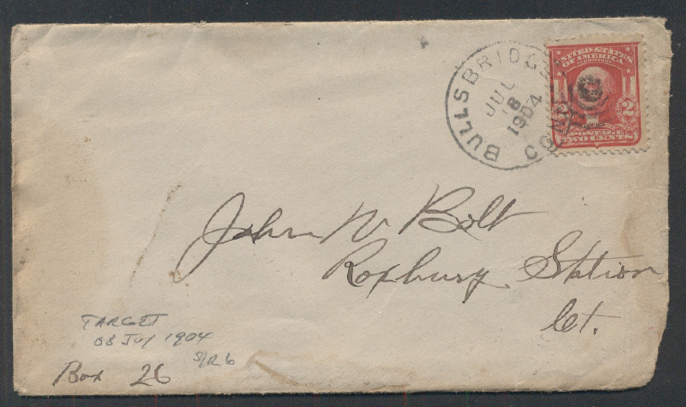 BULLSBRIDGE CONN.
JUL
8
1904
UNITED STATES
OF AMERICA
2 2
POSTAGE
TWO CENTS
John W Bolt
Roxbury Station
Ct.
TARGET
08 Jul 1904
S/R 6
Box 26